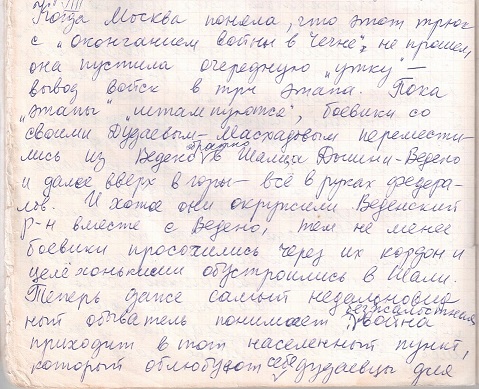 Когда Москва поняла, что этот трюк
с „окончанием войны в Чечне", не прошел,
она пустила очередную „утку" —
вывод войск в три этапа. Пока
„этапы" „штампуются", боевики со
своими Дудаевым-Масхадовым перемести-
лись из Ведено обратно в Шали, а Дышни-Ведено
и далее вверх в горы — всё в руках федера-
лов. И хотя они окружили Веденский
р-н вместе с Ведено, тем не менее
боевики просочились через их кордон и
целёхонькими обустроились в Шали.
Теперь даже самый недальновид-
ный обыватель понимает: безжалостная война
приходит в тот населенный пункт,
который облюбуют себе дудаевцы для